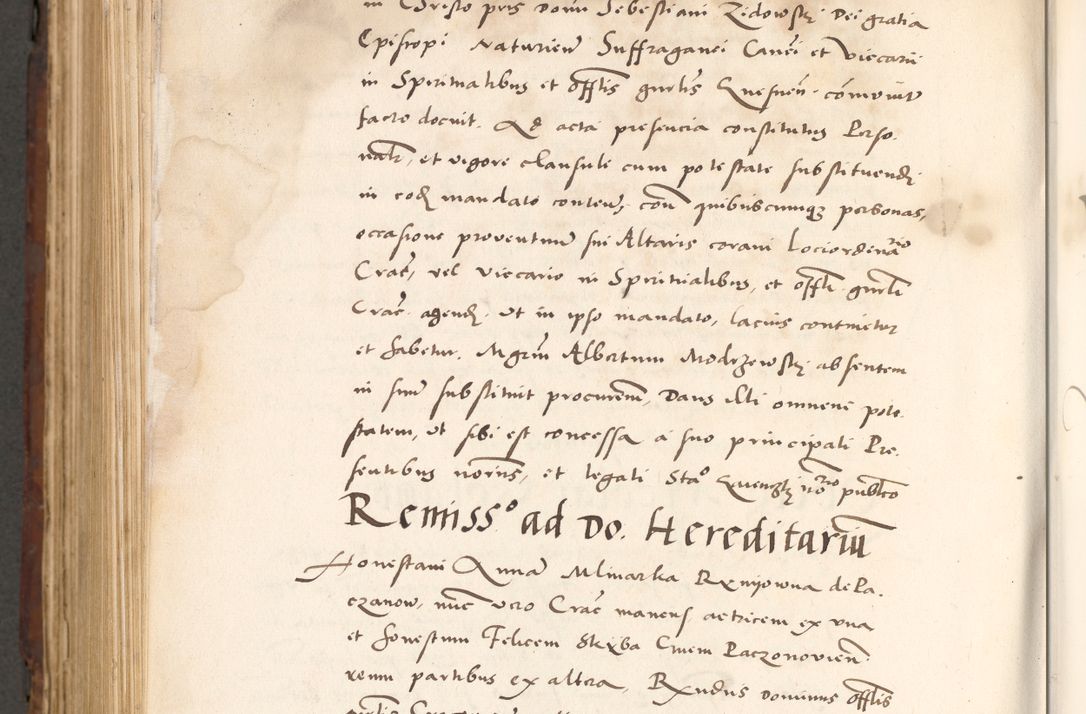 in Christo pris Domi Sebestiani Zidowskj Dei gratia
Episcopi Naturien Suffraganei Canci et Viecarii
in Spiritualibus et offtis gnrlis Gnesnen comoruit
facto docuit. Ad acta presencia constitutus Perso.
natr, et vigore clausuli cum potestate substituendj
in eodj mandato conten, con quibuscumqz personas,
occasione proventuum sui Altaris coram Lociordinario
Crac, vel Viecario in Spiritualibus, et offli gnrli
Crac. agendj. Ut in ipso mandato, lacius continetur
et habetur. Mgrm Albertum Modrzewskj absentem
in suum substituit procurem, Dans illi omnem pote.
statem, ut sibi est concessa a suo principali Pre.
sentibus nobis, et legali Sta° not° publico
Remiss° ad Do. Hereditarium
Honestam Annam Mlinarka Rxmijowna de Pa.
czanow, nuc vero Crac manens actricem ex vna
et honestum Felicem Skxba Civem Paczonovien
reum partibus ex altera, Rxndus Dominus offlis
gnrlis